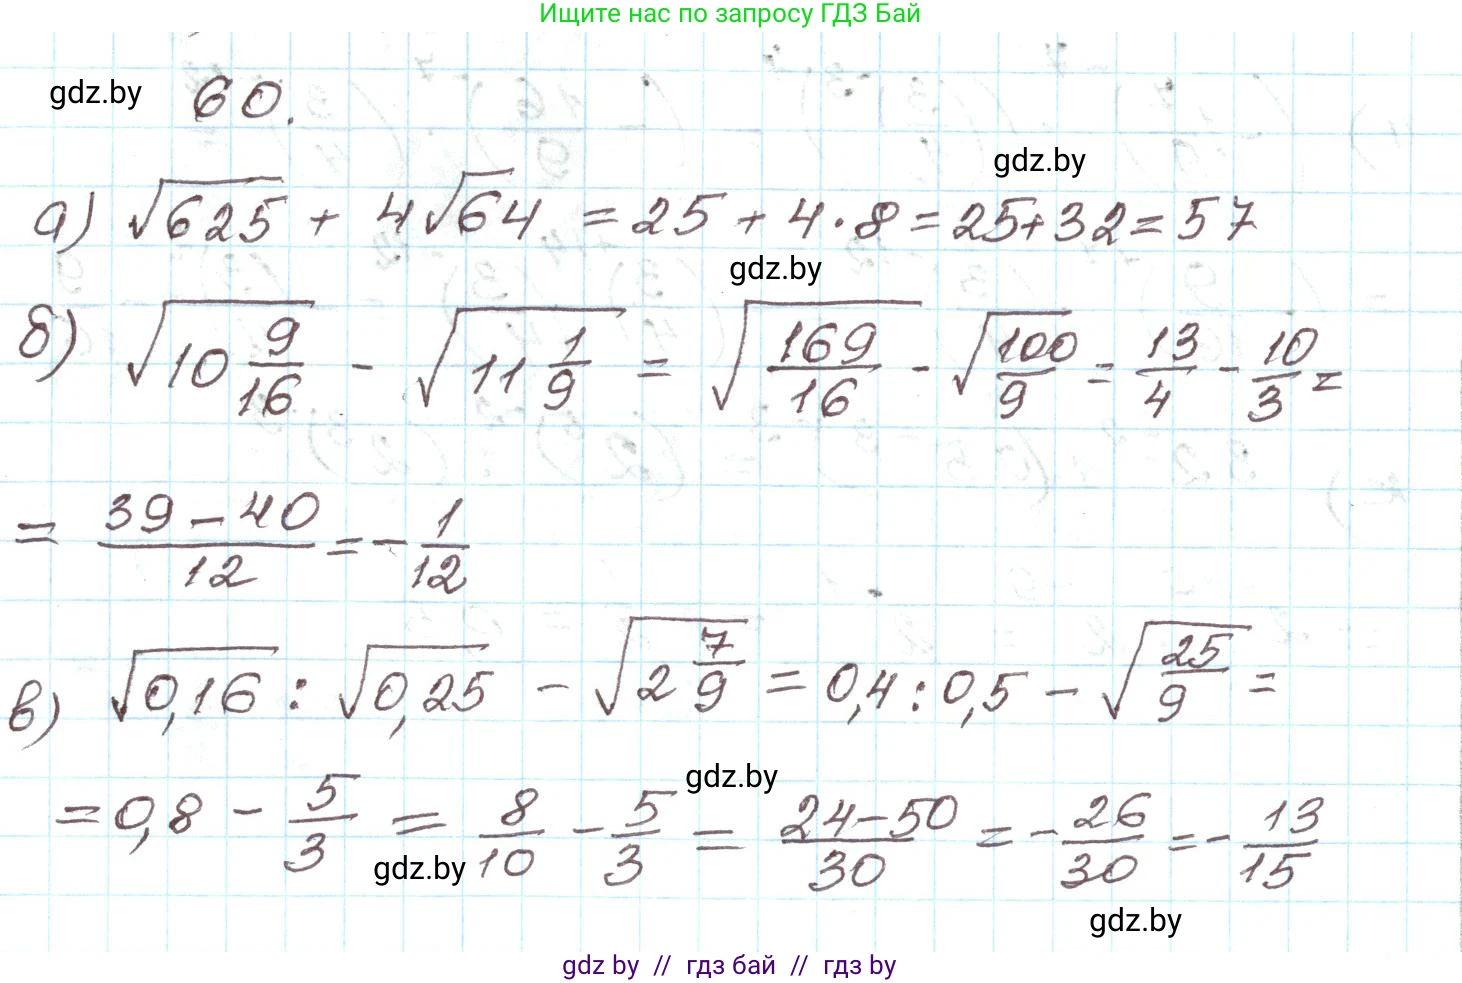 Ищите нас по запросу ГДЗ Бай
gdz.by 60.
gdz.by
а) √625 + 4√64 = 25 + 4·8 = 25+32 = 57
gdz.by
б) √(10 9/16) - √(11 1/9) = √(169/16) - √(100/9) = 13/4 - 10/3 =
= (39-40)/12 = - 1/12
в) √0,16 : √0,25 - √(2 7/9) = 0,4 : 0,5 - √(25/9) =
gdz.by
= 0,8 - 5/3 = 8/10 - 5/3 = (24-50)/30 = - 26/30 = - 13/15
gdz.by
gdz.by
gdz by // гдз бай // гдз by